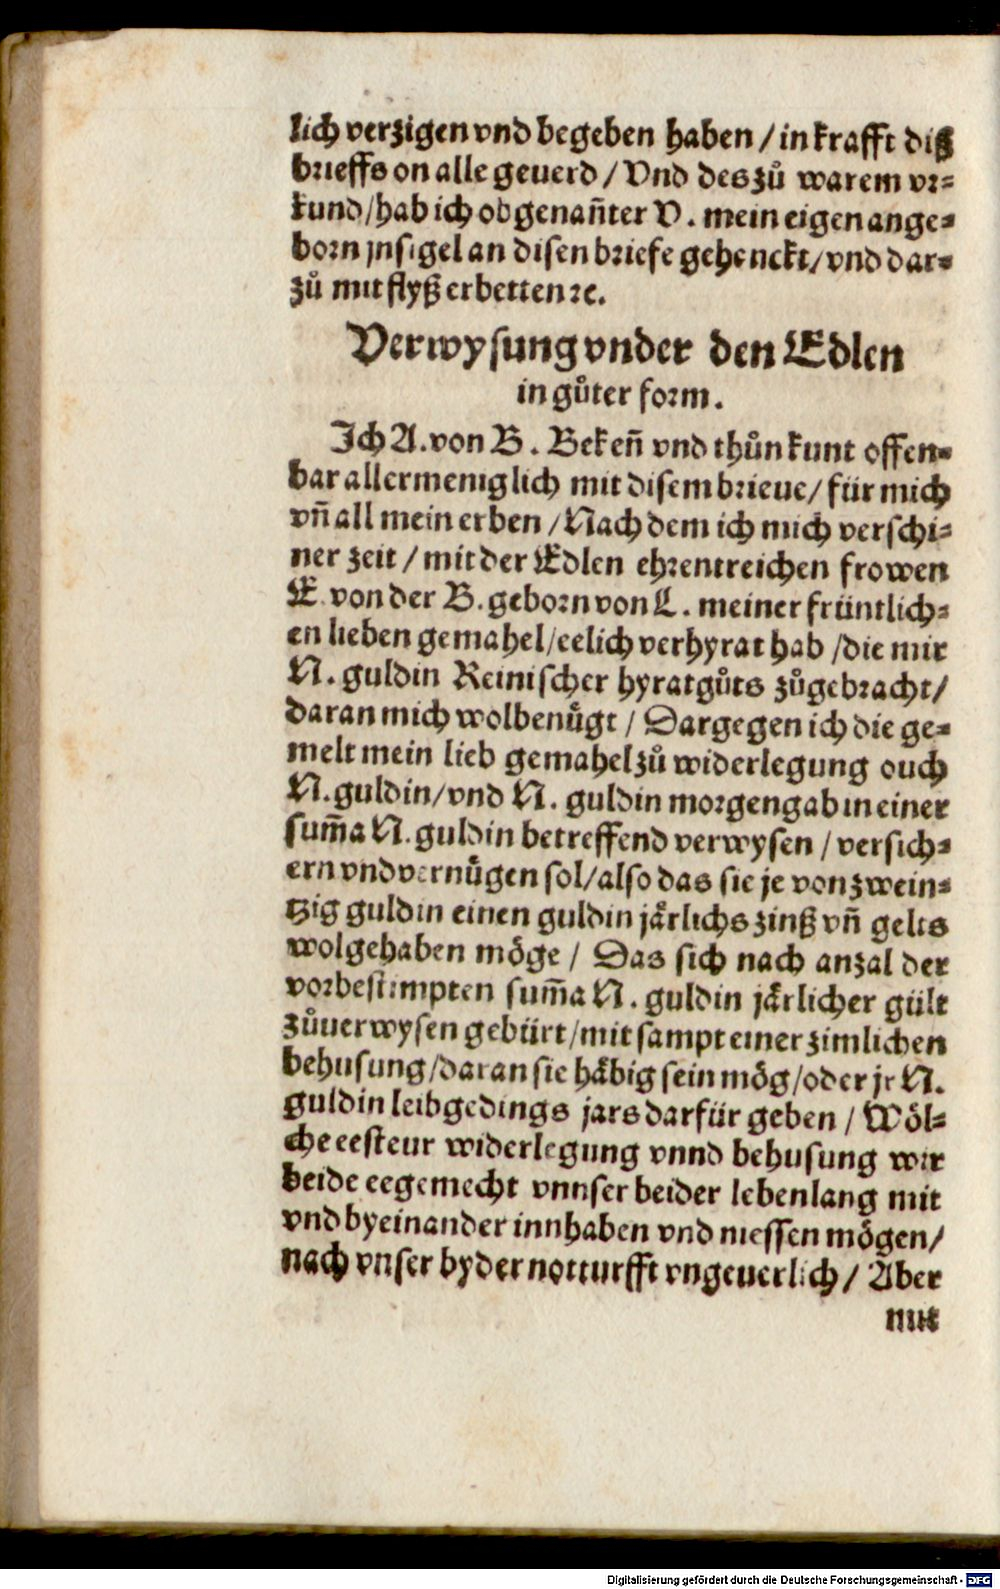 lich verzigen vnd begeben haben / in krafft diß
brieffs on alle geuerd / Vnd des zů warem vr-
kund / hab ich obgenañter V. mein eigen ange-
born jnsigel an disen briefe gehenckt / vnd dar-
zů mit flyß erbetten ꝛc.
Verwysung vnder den Edlen
in gůter form.
Ich A. von B. Bekeñ vnd thůn kunt offen-
bar allermeniglich mit disem brieue / für mich
vñ all mein erben / Nach dem ich mich verschi-
ner zeit / mit der Edlen ehrentreichen frowen
E. von der B. geborn von C. meiner früntlich-
en lieben gemahel / eelich verhyrat hab / die mir
N. guldin Reinischer hyratgůts zůgebracht /
daran mich wolbenůgt / Dargegen ich die ge-
melt mein lieb gemahel zů widerlegung ouch
N. guldin / vnd N. guldin morgengab in einer
sum̃a N. guldin betreffend verwysen / versich-
ern vnd vernůgen sol / also das sie je von zwein-
tzig guldin einen guldin jaͤrlichs zinß vñ gelts
wolgehaben moͤge / Das sich nach anzal der
vorbestimpten sum̃a N. guldin jaͤrlicher gült
zůuerwysen gebürt / mit sampt einer zimlichen
behusung / daran sie haͤbig sein moͤg / oder jr N.
guldin leibgedings jars darfür geben / Woͤl-
che eesteur widerlegung vnnd behusung wir
beide eegemecht vnnser beider lebenlang mit
vnd byeinander innhaben vnd niessen moͤgen /
nach vnser byder notturfft vngeuerlich / Aber
mit
Digitalisierung gefördert durch die Deutsche Forschungsgemeinschaft - DFG